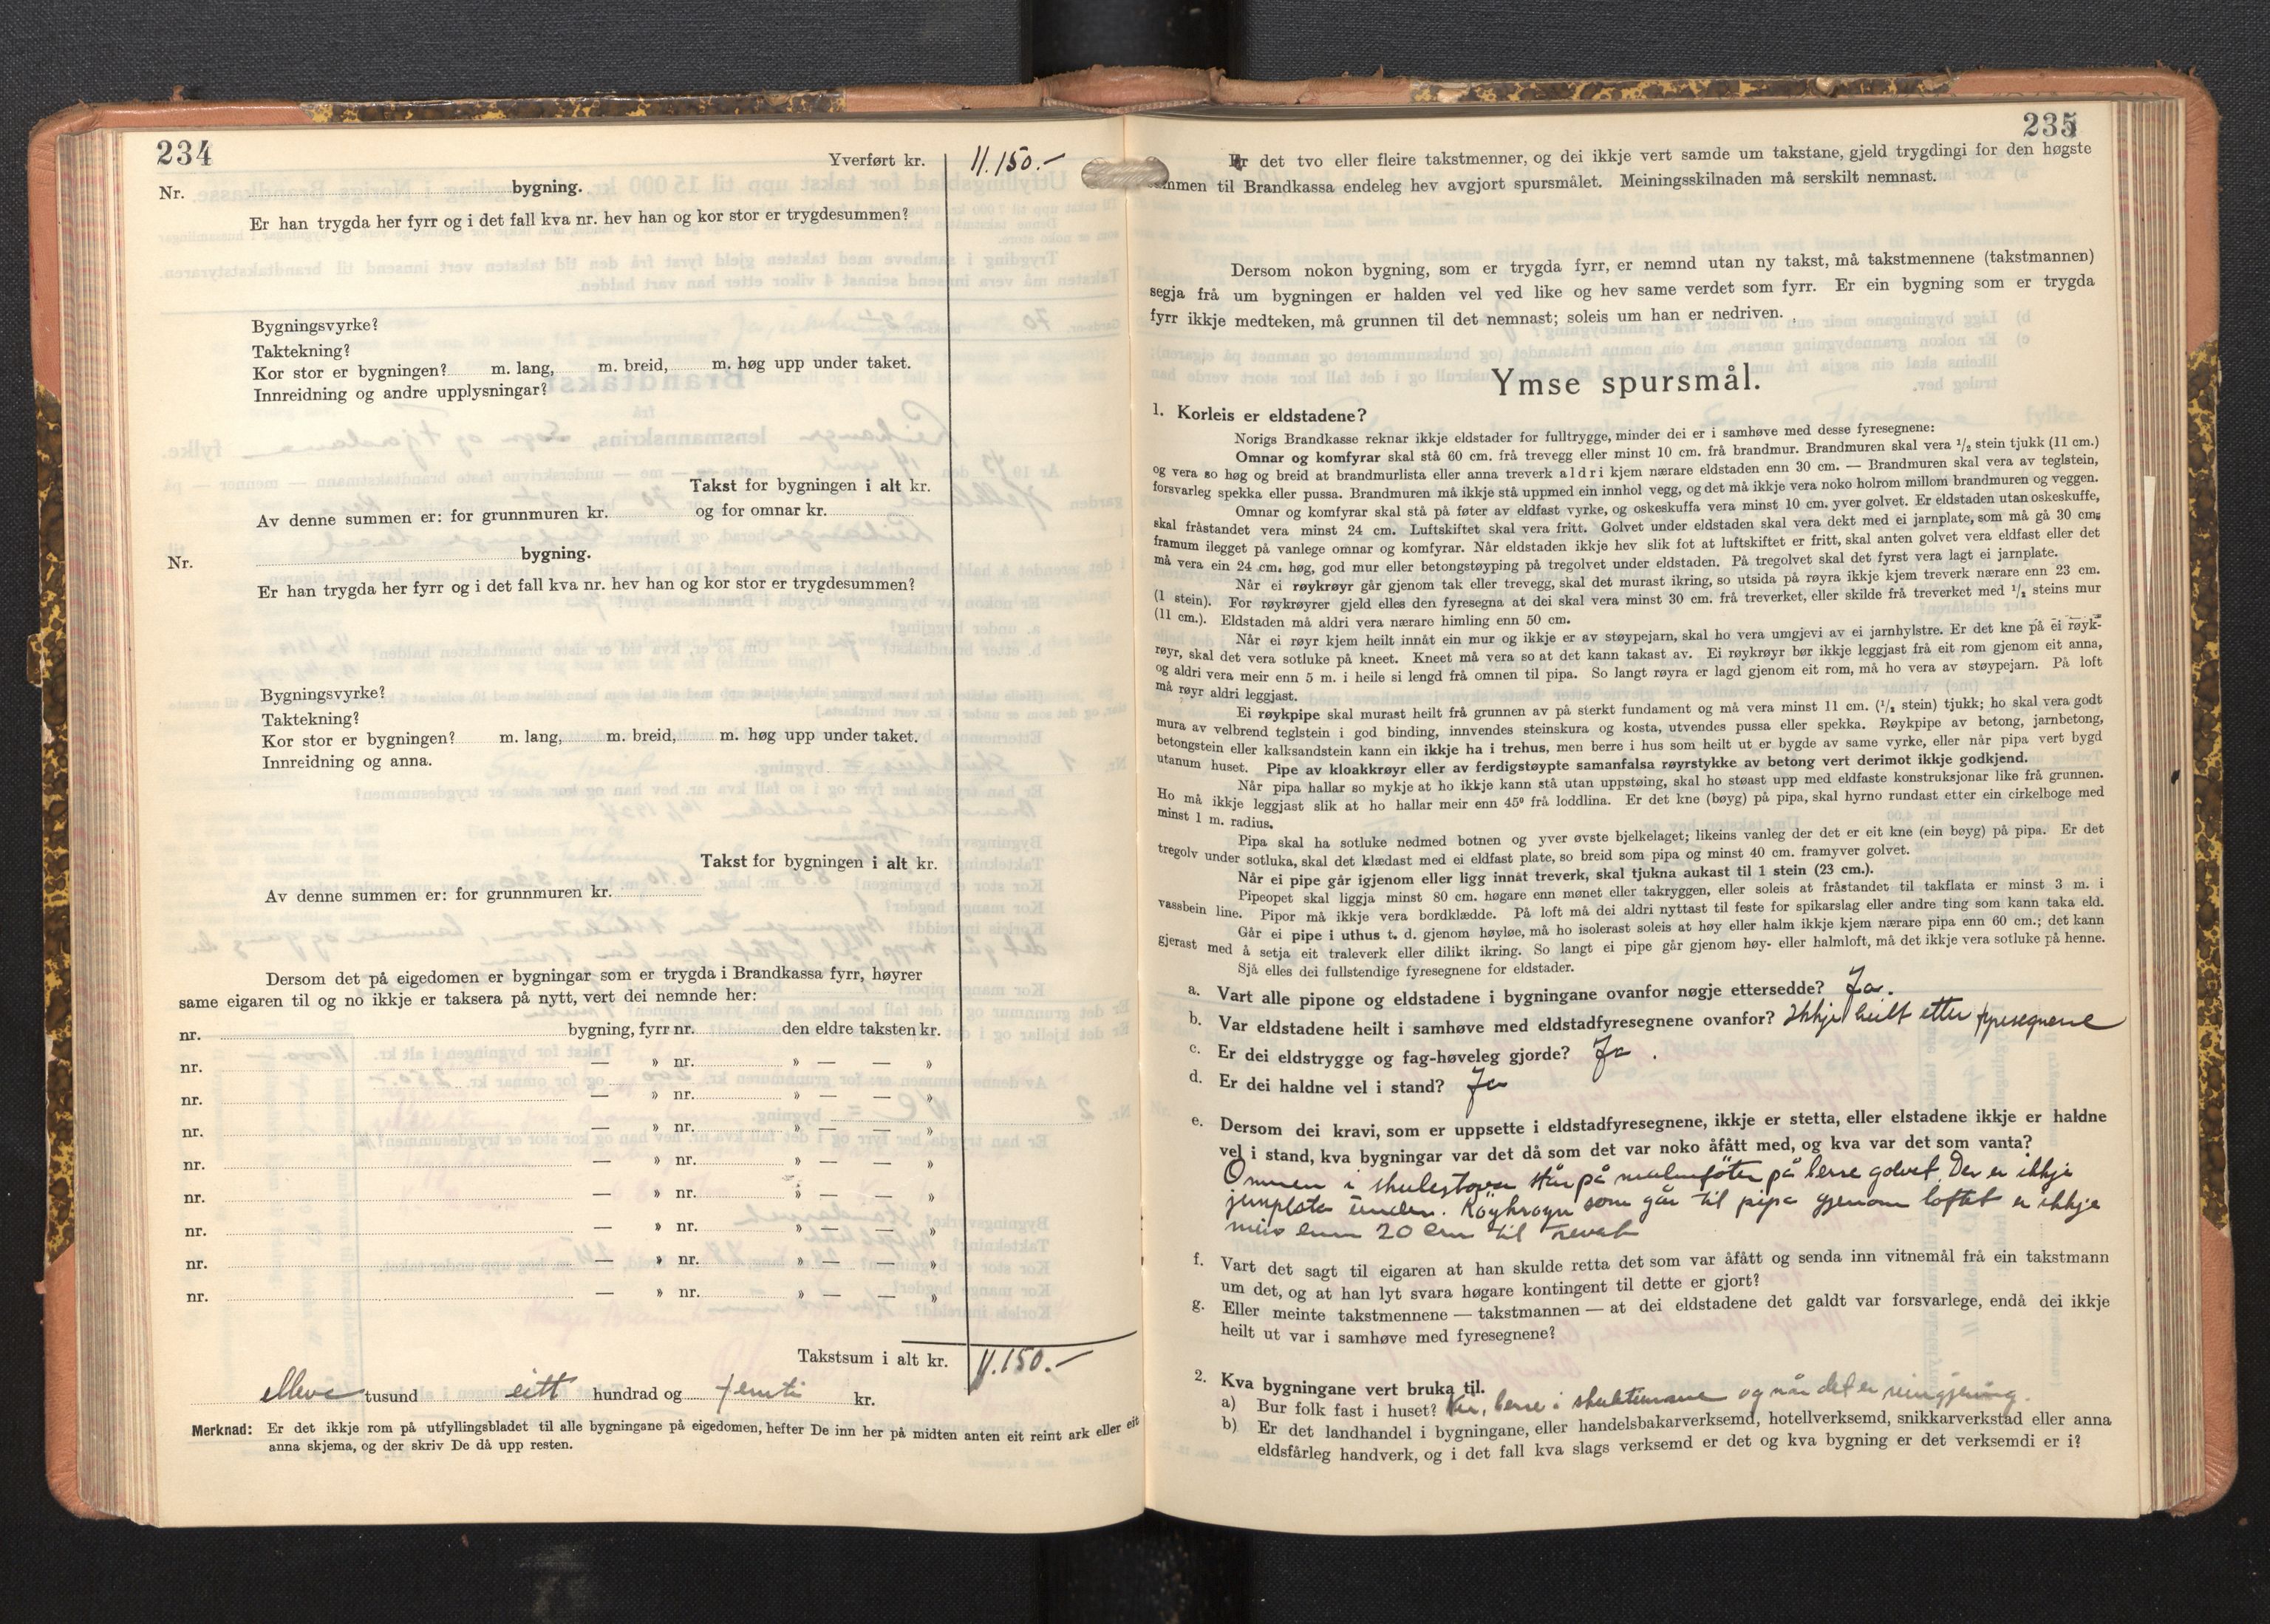 234
Yverført kr. 11.150.-
Nr. bygning.
Er han trygda her fyrr og i det fall kva nr. hev han og kor stor er trygdesummen?
Bygningsvyrke?
Taktekning?
Kor stor er bygningen? m. lang, m. breid, m. høg upp under taket.
Innreidning og andre upplysningar?
Takst for bygningen i alt kr.
Av denne summen er: for grunnmuren kr. og for omnar kr.
Nr. bygning.
Er han trygda her fyrr og i det fall kva nr. hev han og kor stor er trygdesummen?
Bygningsvyrke?
Taktekning?
Kor stor er bygningen? m. lang, m. breid, m. høg upp under taket.
Innreidning og anna.
Takst for bygningen i alt kr.
Av denne summen er: for grunnmuren kr.
Dersom det på eigedomen er bygningar som er trygda i Brandkassa fyrr, høyrer
same eigaren til og no ikkje er taksera på nytt, vert dei nemnde her:
nr. bygning, fyrr nr. den eldre taksten kr.
nr. — » nr. » — — »
nr. — » nr. » — — »
nr. — » nr. » — — »
nr. — » nr. » — — »
nr. — » nr. » — — »
nr. — » nr. » — — »
nr. — » nr. » — — »
nr. — » nr. » — — »
Takstsum i alt kr. 11.150.-
elleve tusund eitt hundrad og femti kr.
Merknad: Er det ikkje rom på utfyllingsbladet til alle bygningane på eigedomen, hefter De inn her på midten anten eit reint ark eller eit
anna skjema, og der skriv De då upp resten.
235
Er det tvo eller fleire takstmenner, og dei ikkje vert samde um takstane, gjeld trygdingi for den høgste
summen til Brandkassa endeleg hev avgjort spursmålet. Meiningsskilnaden må serskilt nemnast.
Dersom nokon bygning, som er trygda fyrr, er nemnd utan ny takst, må takstmennene (takstmannen)
segja frå um bygningen er halden vel ved like og hev same verdet som fyrr. Er ein bygning som er trygda
fyrr ikkje medteken, må grunnen til det nemnast; soleis um han er nedriven.
Ymse spursmål.
1. Korleis er eldstadene?
Norigs Brandkasse reknar ikkje eldstader for fulltrygge, minder dei er i samhøve med desse fyresegnene:
Omnar og komfyrar skal stå 60 cm. frå trevegg eller minst 10 cm. frå brandmur. Brandmuren skal vera 1/2 stein tjukk (11 cm.)
og vera so høg og breid at brandmurlista eller anna treverk aldri kjem nærare eldstaden enn 30 cm. — Brandmuren skal vera av teglstein,
forsvarleg spekka eller pussa. Brandmuren må ikkje stå uppmed ein innhol vegg, og det må ikkje vera noko holrom millom brandmuren og veggen.
Omnar og komfyrar skal stå på føter av eldfast vyrke, og oskeskuffa vera minst 10 cm. yver golvet. Er eldstaden utan oskeskuffe,
skal fråstandet vera minst 24 cm. Luftskiftet skal vera fritt. Golvet under eldstaden skal vera dekt med ei jarnplate, som må gå 30 cm.
framum ilegget på vanlege omnar og komfyrar. Når eldstaden ikkje hev slik fot at luftskiftet er fritt, skal anten golvet vera eldfast eller det
må vera ein 24 cm. høg, god mur eller betongstøyping på tregolvet under eldstaden. På tregolvet skal det fyrst vera lagt ei jarnplate.
Når ei røykrøyr går gjenom tak eller trevegg, skal det murast ikring, so utsida på røyra ikkje kjem treverk nærare enn 23 cm.
(1 stein). For røykrøyrer gjeld elles den fyresegna at dei skal vera minst 30 cm. frå treverket, eller skilde frå treverket med 1/2 steins mur
(11 cm.). Eldstaden må aldri vera nærare himling enn 50 cm.
Når ei røyr kjem heilt innåt ein mur og ikkje er av støypejarn, skal ho vera umgjevi av ei jarnhylstre. Er det kne på ei røyk-
røyr, skal det vera sotluke på kneet. Kneet må vera so at det kann takast av. Ei røykrøyr bør ikkje leggjast frå eit rom gjenom eit anna,
og aldri vera meir enn 5 m. i heile si lengd frå omnen til pipa. So langt røyra er lagd gjenom eit rom, må ho vera av støypejarn. På loft
må røyr aldri leggjast.
Ei røykpipe skal murast heilt frå grunnen av på sterkt fundament og må vera minst 11 cm. (1/2 stein) tjukk; ho skal vera godt
mura av velbrend teglstein i god binding, innvendes steinskura og kosta, utvendes pussa eller spekka. Røykpipe av betong, jarnbetong,
betongstein eller kalksandstein kann ein ikkje ha i trehus, men berre i hus som heilt ut er bygde av same vyrke, eller når pipa vert bygd
utanum huset. Pipe av kloakkrøyr eller av ferdigstøypte samanfalsa røyrstykke av betong vert derimot ikkje godkjend.
Når pipa hallar so mykje at ho ikkje kann stå utan uppstøing, skal ho støast upp med eldfaste konstruksjonar like frå grunnen.
Ho må ikkje leggjast slik at ho hallar meir enn 45° frå loddlina. Er det kne (bøyg) på pipa, skal hyrno rundast etter ein cirkelboge med
minst 1 m. radius.
Pipa skal ha sotluke nedmed botnen og yver øvste bjelkelaget; likeins vanleg der det er eit kne (ein bøyg) på pipa. Er det
tregolv under sotluka, skal det klædast med ei eldfast plate, so breid som pipa og minst 40 cm. framyver golvet.
Når ei pipe går igjenom eller ligg innåt treverk, skal tjukna aukast til 1 stein (23 cm.).
Pipeopet skal liggja minst 80 cm. høgare enn mønet eller takryggen, eller soleis at fråstandet til takflata er minst 3 m. i
vassbein line. Pipor må ikkje vera bordklædde. På loft må dei aldri nyttast til feste for spikarslag eller andre ting som kann taka eld.
Går ei pipe i uthus t. d. gjenom høyløe, må ho isolerast soleis at høy eller halm ikkje kjem nærare pipa enn 60 cm.; det kann
gjerast med å setja eit traleverk eller dilikt ikring. So langt ei pipe går gjenom høy- eller halmloft, må det ikkje vera sotluke på henne.
Sjå elles dei fullstendige fyresegnene for eldstader.
a. Vart alle pipone og eldstadene i bygningane ovanfor nøgje ettersedde? Ja.
b. Var eldstadene heilt i samhøve med eldstadfyresegnene ovanfor? Ikkje heilt etter fyresegnene
c. Er dei eldstrygge og fag-høveleg gjorde? Ja.
d. Er dei haldne vel i stand? Ja
e. Dersom dei kravi, som er uppsette i eldstadfyresegnene, ikkje er stetta, eller elstadene ikkje er haldne
vel i stand, kva bygningar var det då som det var noko åfått med, og kva var det som vanta?
Omnen i skulestova står på malmføter på berre golvet. Der er ikkje
jernplate under. Røykrøyr som går til pipa gjenom loftet er ikkje
meir enn 20 cm til trevet
f. Vart det sagt til eigaren at han skulde retta det som var åfått og senda inn vitnemål frå ein takstmann
um det, og at han lyt svara høgare kontingent til dette er gjort?
g. Eller meinte takstmennene — takstmannen — at dei eldstadene det galdt var forsvarlege, endå dei ikkje
heilt ut var i samhøve med fyresegnene?
2. Kva bygningane vert bruka til.
a) Bur folk fast i huset? Nei, berre i skuletimane og når det er reingjering.
b) Er det landhandel i bygningane, eller handelsbakarverksemd, hotellverksemd, snikkarverkstad eller anna
eldsfårleg handverk, og i det fall kva slags verksemd er det og kva bygning er det verksemdi er i?